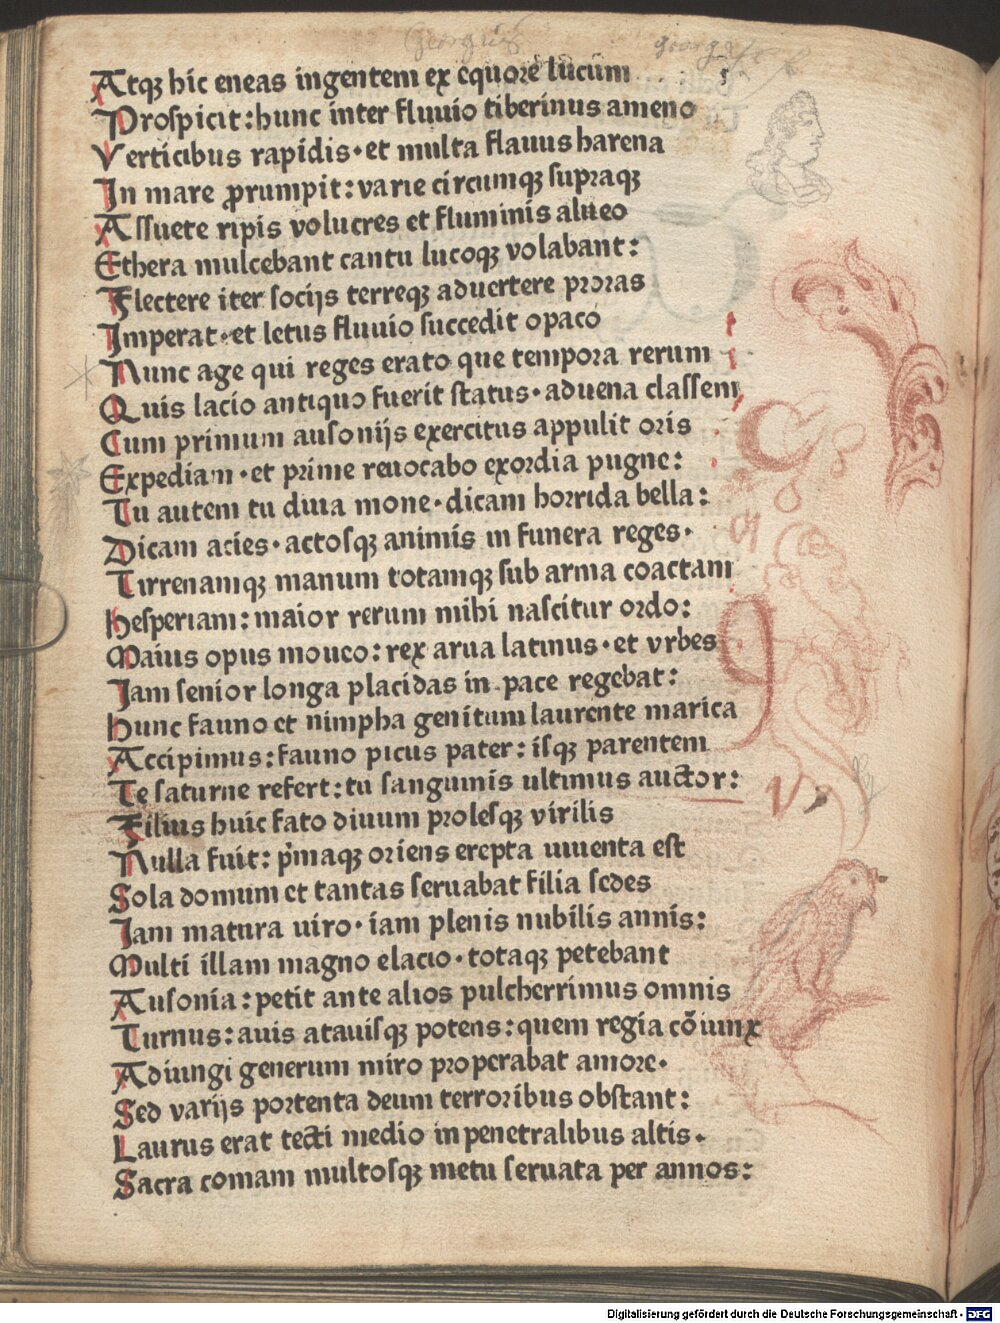 Georgius
georgius
Atqꝫ hic eneas ingentem ex equore lucum
Prospicit: hunc inter fluuio tiberinus ameno
Verticibus rapidis · et multa flauus harena
In mare ꝓrumpit: varie circumqꝫ supraqꝫ
Assuete ripis volucres et fluminis alueo
Ethera mulcebant cantu lucoqꝫ volabant:
Flectere iter socijs terreqꝫ aduertere proras
Imperat · et letus fluuio succedit opaco
Nunc age qui reges erato que tempora rerum
Quis lacio antiquo fuerit status · aduena classem
Cum primum ausonijs exercitus appulit oris
Expediam · et prime reuocabo exordia pugne:
Tu autem tu diua mone · dicam horrida bella:
Dicam acies · actosqꝫ animis in funera reges ·
Tirrenamqꝫ manum totamqꝫ sub arma coactam
hesperiam: maior rerum mihi nascitur ordo:
Maius opus mouco: rex arua latinus · et vrbes
Jam senior longa placidas in pace regebat:
hunc fauno et nimpha genitum laurente marica
Accipimus: fauno picus pater: isqꝫ parentem
Te saturne refert: tu sanguinis ultimus auctor:
Filius huic fato diuum prolesqꝫ virilis
Nulla fuit: pͥmaqꝫ oriens erepta iuuenta est
Sola domum et tantas seruabat filia sedes
Jam matura uiro · iam plenis nubilis annis:
Multi illam magno elacio · totaqꝫ petebant
Ausonia: petit ante alios pulcherrimus omnis
Turnus: auis atauisqꝫ potens: quem regia cōiunx
Adiungi generum miro properabat amore ·
Sed varijs portenta deum terroribus obstant:
Laurus erat tecti medio in penetralibus altis ·
Sacra comam multosqꝫ metu seruata per annos:
Digitalisierung gefördert durch die Deutsche Forschungsgemeinschaft - DFG